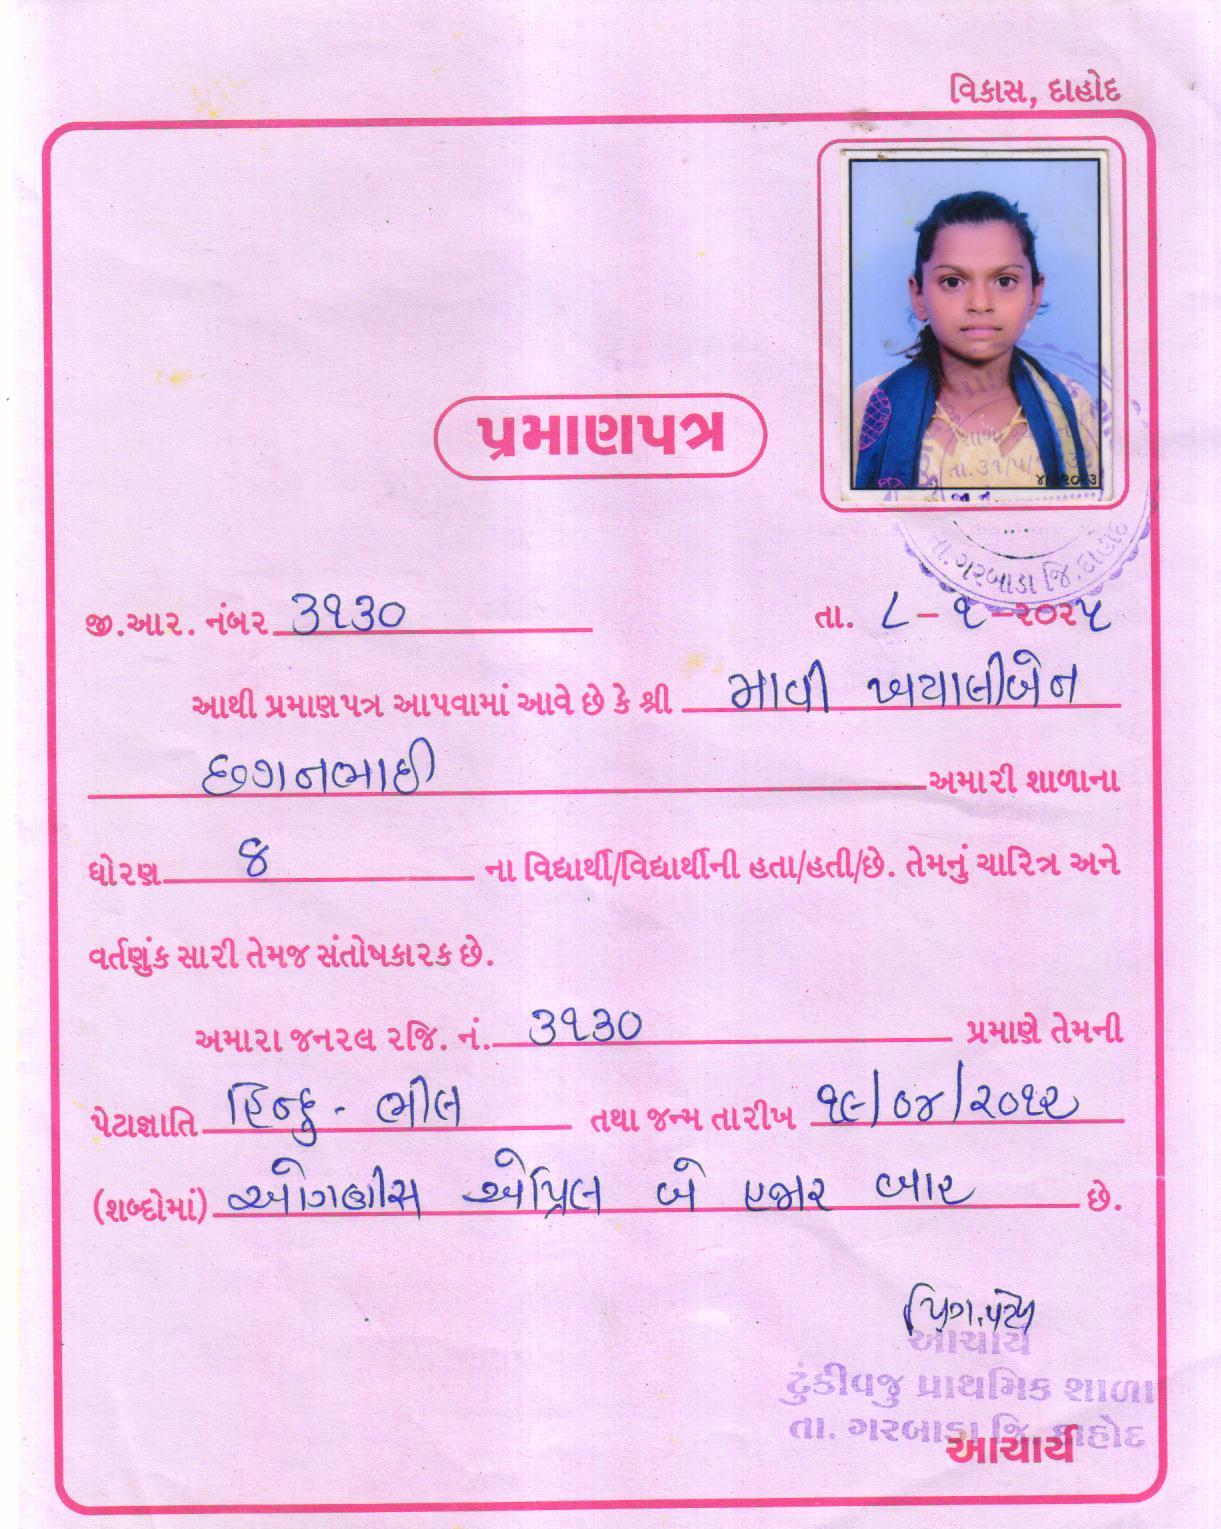 વિકાસ, દાહોદ
પ્રમાણપત્ર
જી.આર. નંબર ૩૧૩૦ તા. ૮-૧-૨૦૨૫
આથી પ્રમાણપત્ર આપવામાં આવે છે કે શ્રી માવી ખયાલીબેન
છગનભાઈ અમારી શાળાના
ધોરણ ૪ ના વિદ્યાર્થી/વિદ્યાર્થીની હતા/હતી/છે. તેમનું ચારિત્ર અને
વર્તણુંક સારી તેમજ સંતોષકારક છે.
અમારા જનરલ રજિ. નં. ૩૧૩૦ પ્રમાણે તેમની
પેટાજ્ઞાતિ હિન્દુ - ભીલ તથા જન્મ તારીખ ૧૯/૦૪/૨૦૧૨
(શબ્દોમાં) ઓગણીસ એપ્રિલ બે હજાર બાર છે.
આચાર્ય
ટુંકીવજુ પ્રાથમિક શાળા
તા. ગરબાડા જિ. દાહોદ
આચાર્ય
તા. ગરબાડા જિ. દાહોદ